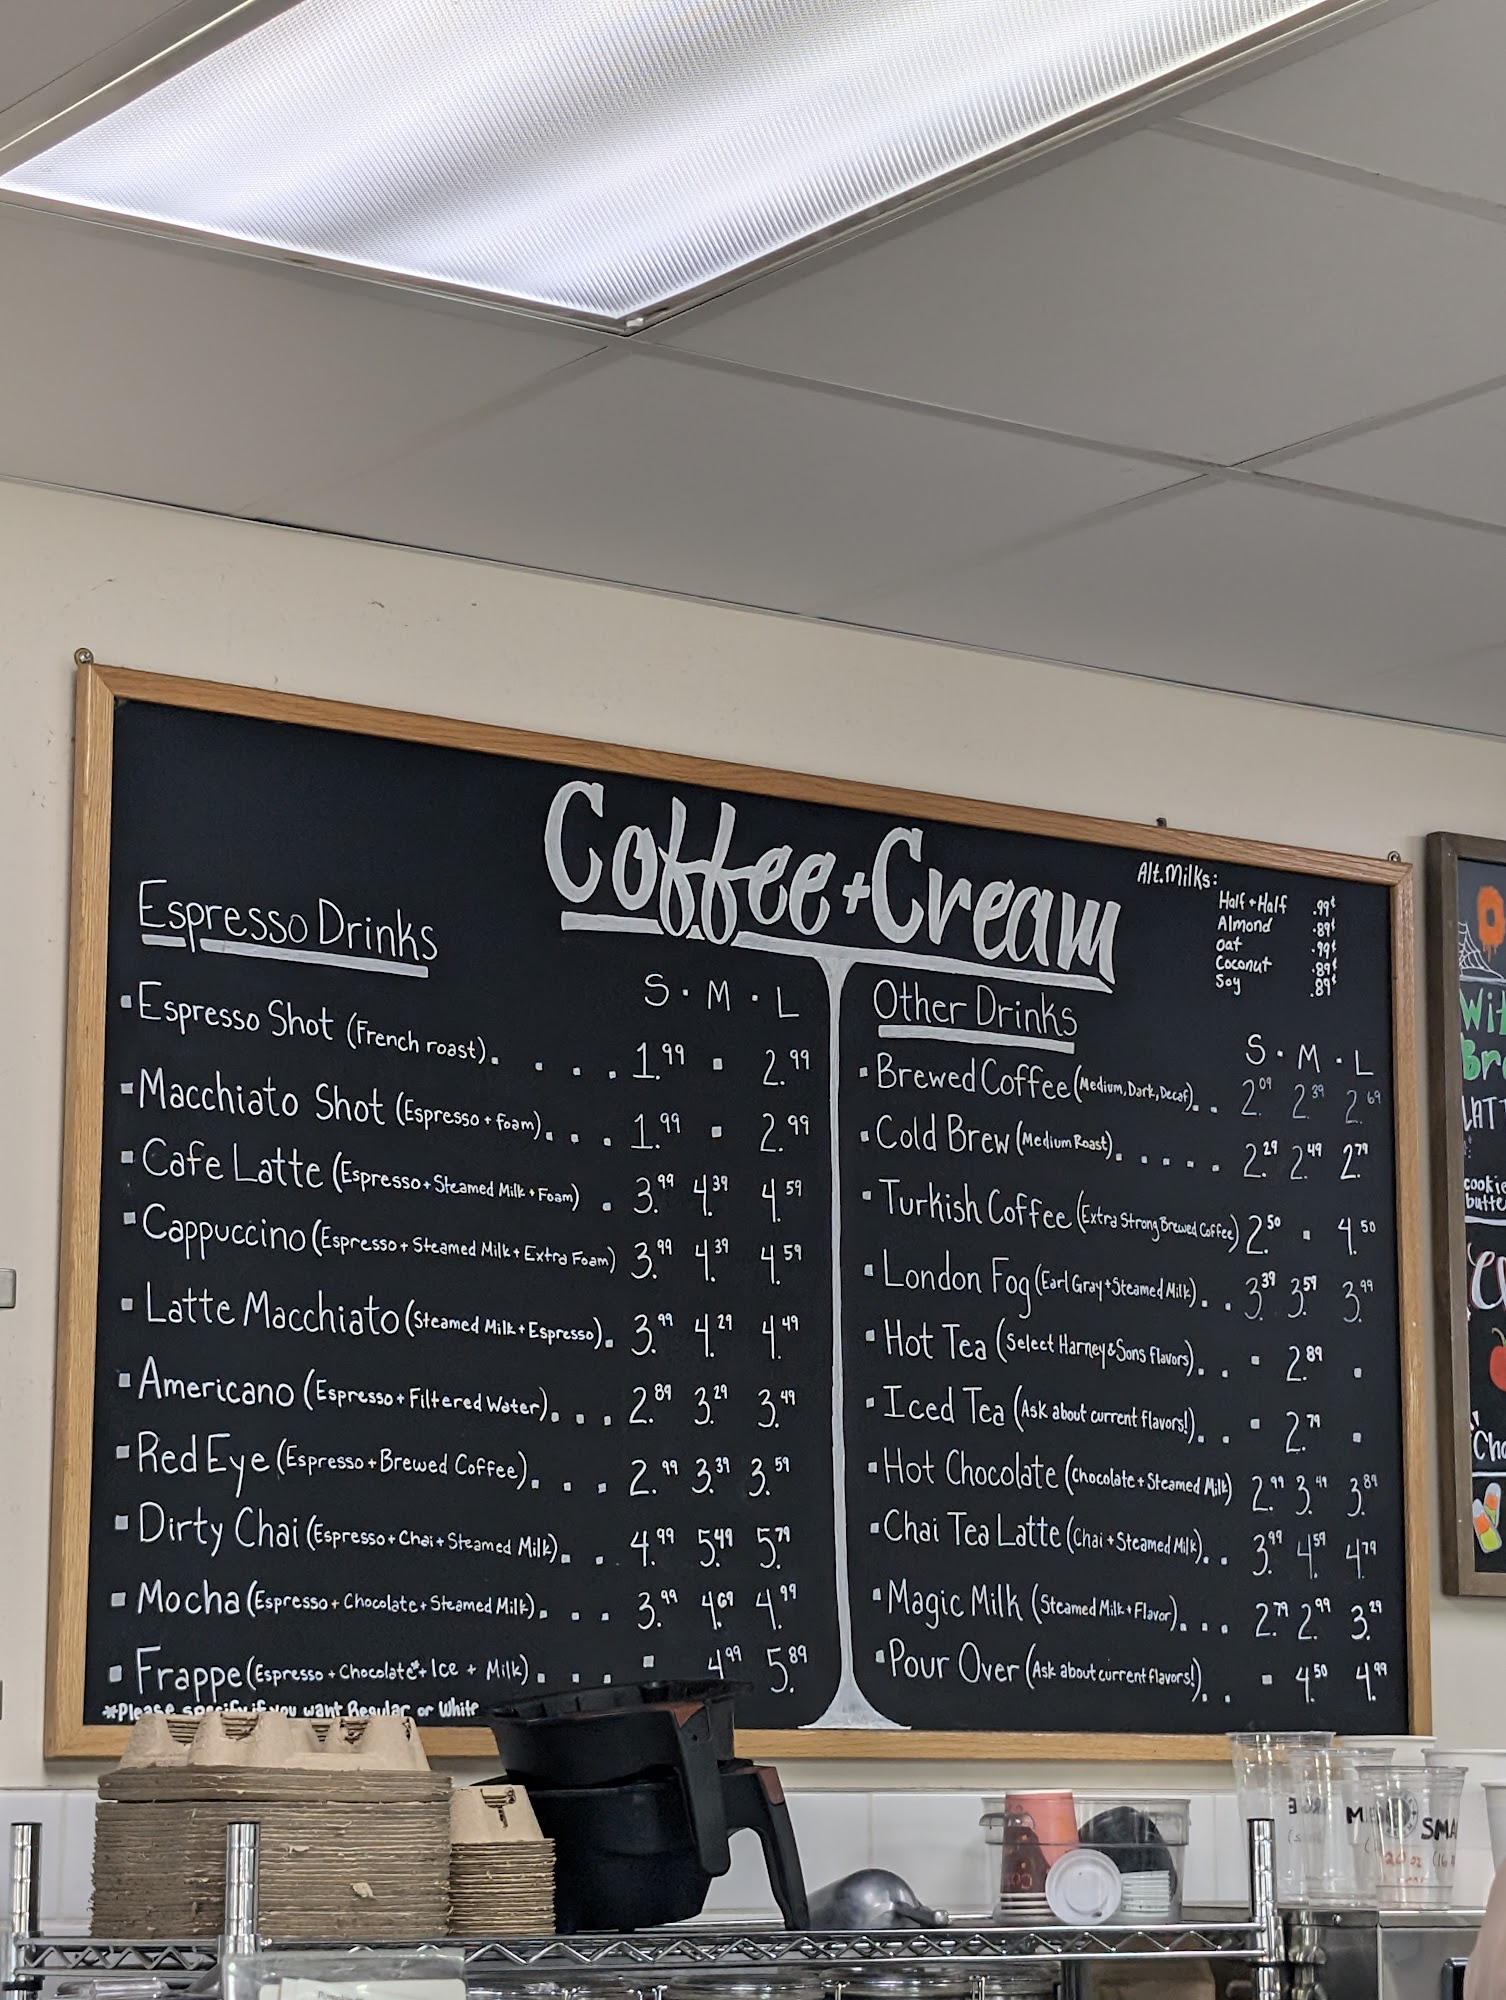 Coffee + Cream
Alt. Milks:
Half + Half .99¢
Almond .89¢
Oat .99¢
Coconut .89¢
Soy .89¢
Espresso Drinks
S . M . L
▪ Espresso Shot (French roast). . . . 1.99 ▪ 2.99
▪ Macchiato Shot (Espresso + foam). . . . 1.99 ▪ 2.99
▪ Cafe Latte (Espresso + Steamed Milk + Foam) . 3.99 4.39 4.59
▪ Cappuccino (Espresso + Steamed Milk + Extra Foam) 3.99 4.39 4.59
▪ Latte Macchiato (Steamed Milk + Espresso). 3.99 4.29 4.49
▪ Americano (Espresso + Filtered Water). . . . 2.89 3.29 3.49
▪ Red Eye (Espresso + Brewed Coffee). . . . 2.99 3.39 3.59
▪ Dirty Chai (Espresso + Chai + Steamed Milk). . . 4.99 5.49 5.79
▪ Mocha (Espresso + Chocolate + Steamed Milk). . . . 3.99 4.69 4.99
▪ Frappe (Espresso + Chocolate* + Ice + Milk). . . . ▪ 4.99 5.89
*Please specify if you want Regular or White
Other Drinks
S . M . L
▪ Brewed Coffee (Medium, Dark, Decaf). . . 2.09 2.39 2.69
▪ Cold Brew (Medium Roast). . . . . 2.29 2.49 2.79
▪ Turkish Coffee (Extra Strong Brewed Coffee) 2.50 ▪ 4.50
▪ London Fog (Earl Gray + Steamed Milk). . . 3.39 3.59 3.99
▪ Hot Tea (Select Harney & Sons flavors). . . ▪ 2.89 ▪
▪ Iced Tea (Ask about current flavors!). . . ▪ 2.79 ▪
▪ Hot Chocolate (Chocolate + Steamed Milk) 2.99 3.49 3.89
▪ Chai Tea Latte (Chai + Steamed Milk). . . 3.99 4.59 4.79
▪ Magic Milk (Steamed Milk + Flavor). . . . 2.79 2.99 3.29
▪ Pour Over (Ask about current flavors!). . . ▪ 4.50 4.99
Wit
Br
LATT
cookie
butte
Cha
SMA
20 oz